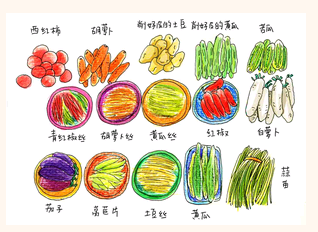 西红柿
胡萝卜
削好皮的土豆
削好皮的黄瓜
苦瓜
青红椒丝
胡萝卜丝
黄瓜丝
红椒
白萝卜
茄子
莴苣片
土豆丝
黄瓜
蒜苗